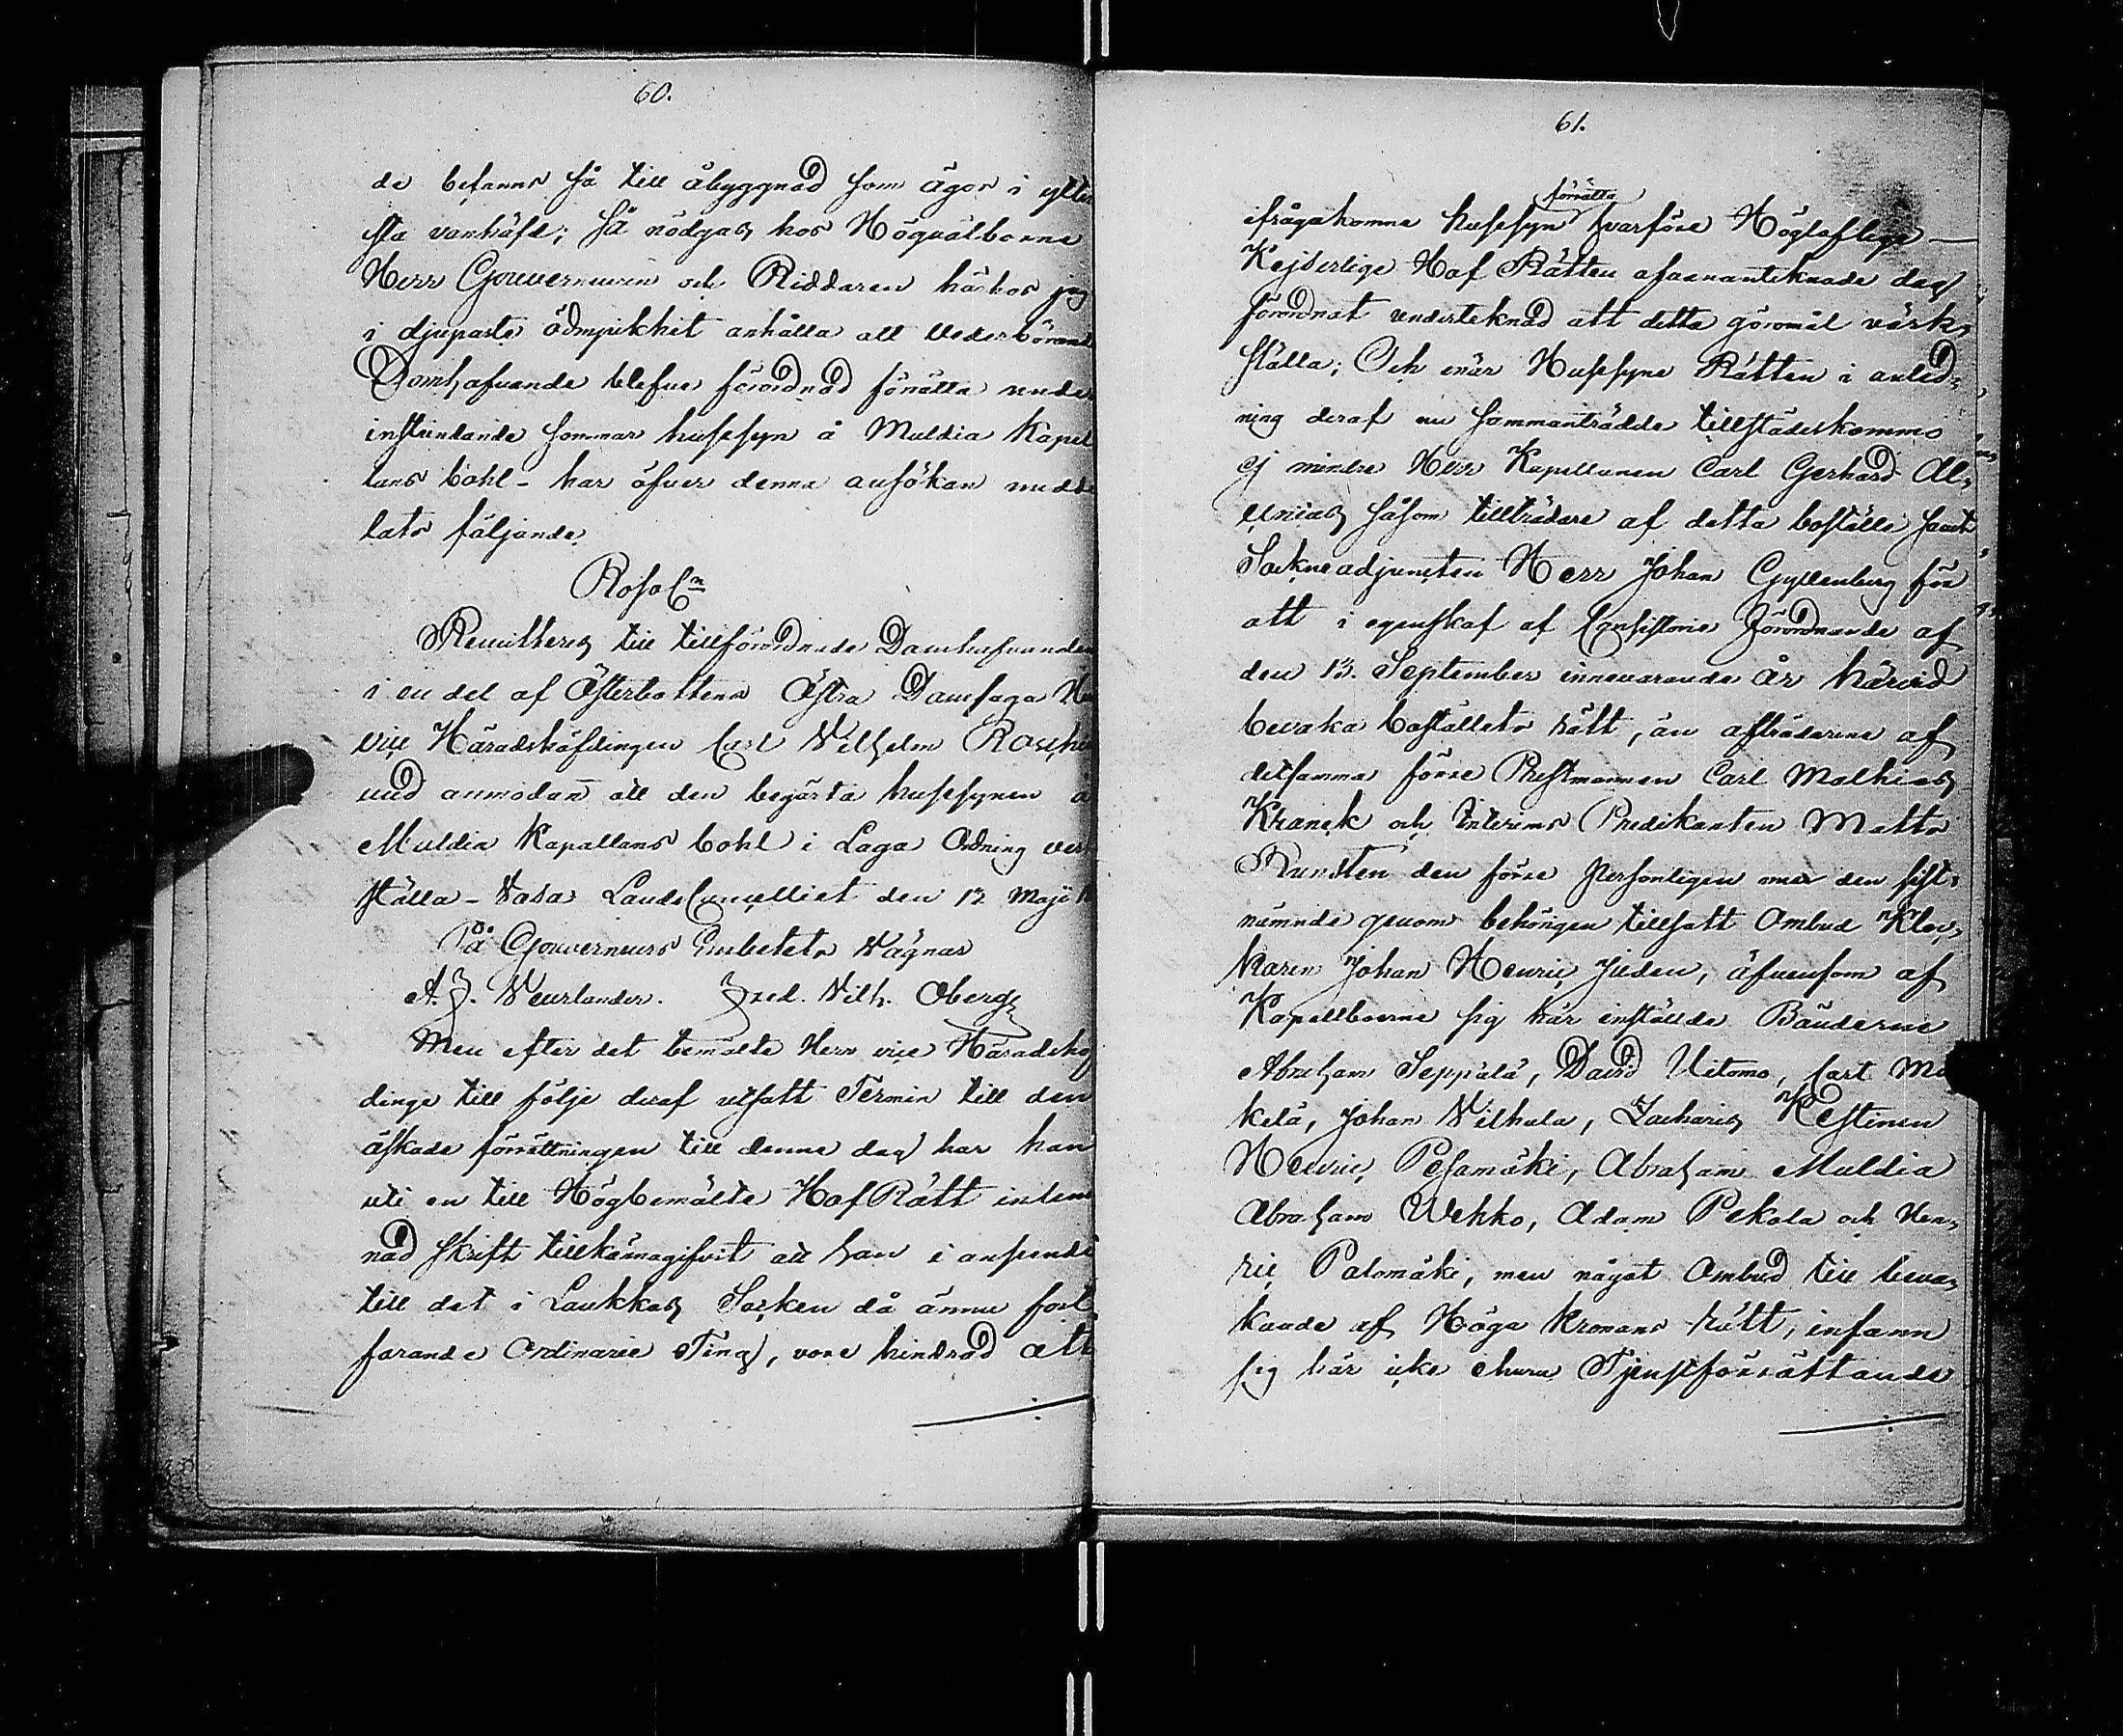 60.
de befanns så till åbyggnad som ägor i ytter
sta vanhäfd; så nödgas hos Högvälborne
Herr Gouverneuren och Riddaren härhos jag
i djupaste ödmjukhet anhålla att Vederbörand
Domhafvande blefve förordnad förrätta unde
instundande sommar husesyn å Muldia Kapel
lans bohl - har öfver denna ansökan medde
lats följande
Resol<sup>n</sup>
Remitteras till tillförordnade Domhafvanden
i en del af Österbottens Östra Domsaga H
vice Häradshöfdingen Carl Vilhelm
med anmodan att den begärta husesynen å
Muldia Kapellans bohl i Laga Ordning verk
ställa - Vasa Lands Cancelliet den 12 Maji
På Gouverneurs Embetets Vägnar
A. J. Fred. Vilh. Oberg
Men efter det bemälte Herr vice Häradshöf
dinge till följe deraf utsatt Termin till den
äskade förrättningen till denna dag har han
uti en till Högbemälte Hof Rätt inlem
nad skrift tillkännagifvit att han i anseende
till det i Laukkas Socken då ännu fort
farande Ordinarie Ting, vore hindrad att
61.
förrätta
ifrågakomne husesyn hvarföre Högloflige
Kejserlige Hof Rätten ofvananteknade dag
förordnat undertecknad att detta göromål värk,
ställa; Och enär Husesyns Rätten i anled,
ning deraf nu sammanträdde tillstädeskommo
ej mindre Herr Kapellanen Carl Gerhard Al,
lenius såsom tillträdare af detta boställe samt
Sockneadjuncten Herr Johan Gyllenberg för
att i egenskaf af Consistorie förordnande af
den 13. September innevarande år härvid
bevaka boställets rätt, än afträdarene af
detsamma förre Prestmannen Carl Mathias
Kranck och Interims Predikanten Matts
Rundsten den förre personligen men den sist,
nämnde genom behörigen tillsatt Ombud Kloc,
karen Johan Henric Jieden, äfvensom af
Kapellboerne sig här inställde Bönderne
Abraham Seppälä, David Uitomo, Carl Mä
kelä, Johan Vilhula, Zacharias Kestinen
Henric Pesamäki, Abraham Muldia
Abraham Wehko, Adam Pekola och Hen,
ric Palomäki, men något Ombud till beva,
kande af Höga Kronans rätt, infann
sig här icke ehuru Tjenstförrättande